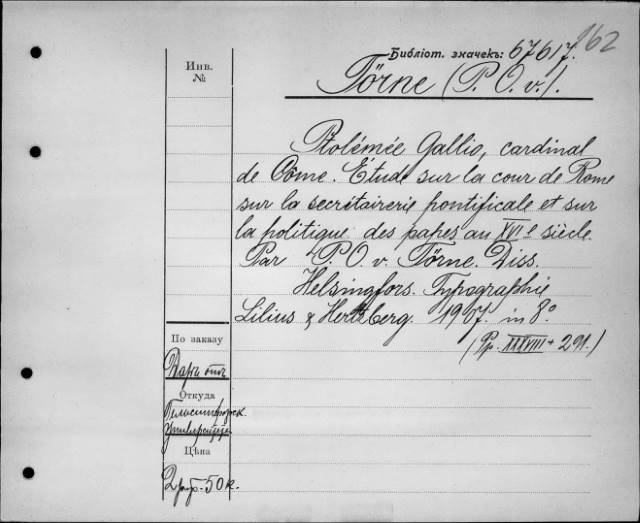 162
Библіот. значекъ: 67617.
Инв.
№
Törne (P. O. v.).
Ptolémée Gallio, cardinal
de Côme. Étude sur la cour de Rome
sur la secrétairerie pontificale et sur
la politique des papes au XVI e siècle.
Par P. O. v. Törne. Diss.
Helsingfors. Typographie
Lilius & Hertzberg. 1907. in 8°.
(Pp. XXXVIII + 291.)
По заказу
Даръ отъ
Откуда
Гельсингфорск.
Университета
Цѣна
2 руб. 50 к.